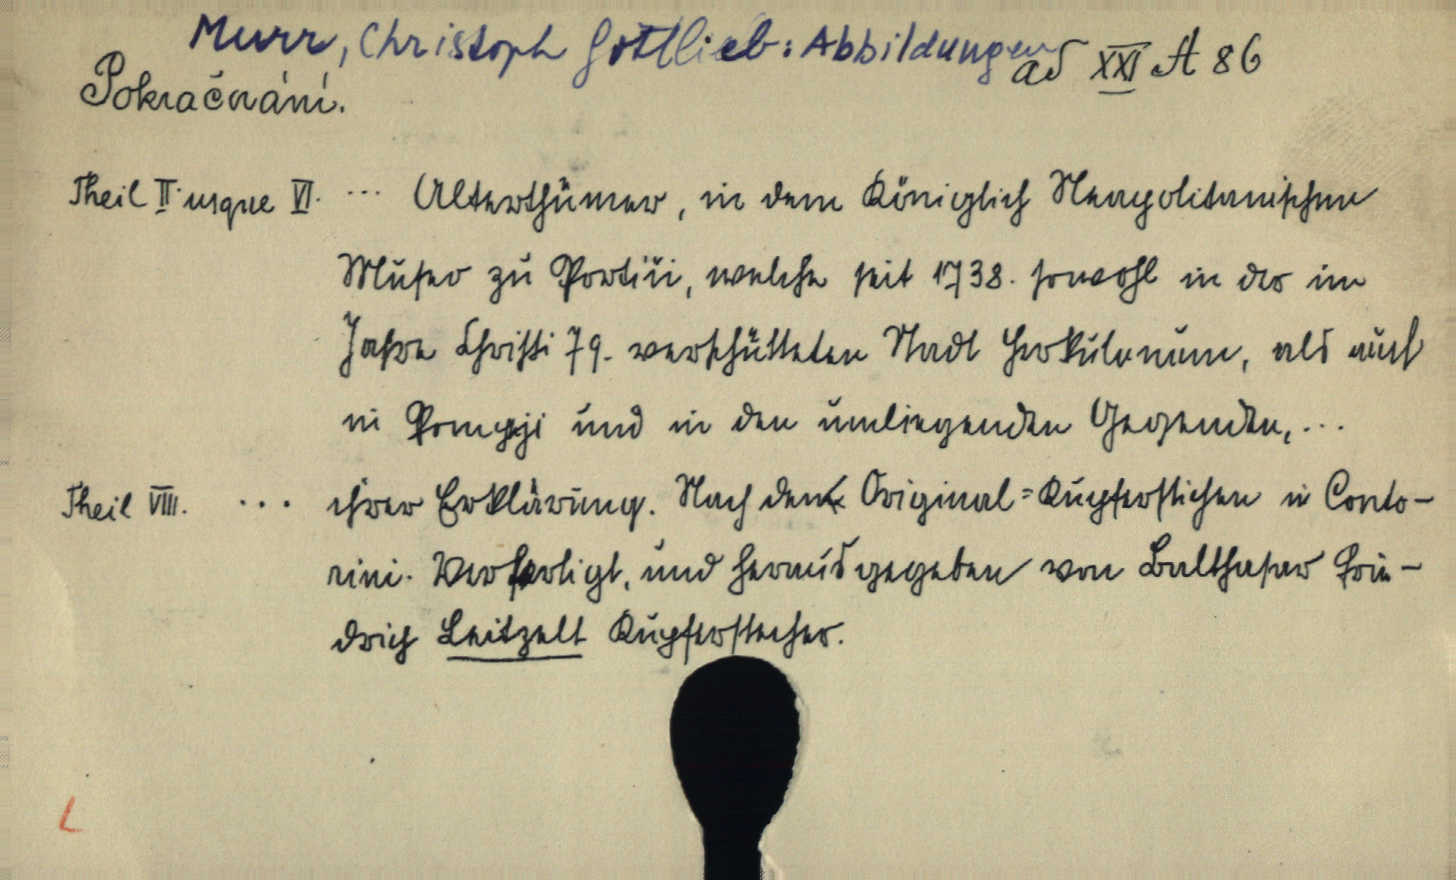 Murr, Christoph Gottlieb: Abbildungen
ad XXI A 86
Pokračování.
Theil II. usque VI. ... Alterthümer, in dem Königlich Neapolitanischen
Museo zu Portici, welche seit 1738. sowohl in der im
Jahre Christi 79. verschütteten Stadt Herkulanum, als auch
in Pompeji und in den umliegenden Gegenden, ...
Theil VIII. ... ihrer Erklärung. Nach den Original=Kupferstichen in Conto-
rini. Verfertigt, und herausgegeben von Balthasar Frie-
drich Leitzelt Kupferstecher.
L